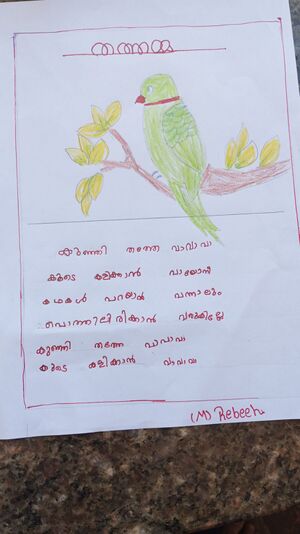 തത്തമ്മ
കുഞ്ഞി തത്തേ വാവാവാ
കൂടെ കളിക്കാൻ വായോനീ
കഥകൾ പറയാൻ വന്നാലും
പൊത്തിലിരിക്കാൻ
കുഞ്ഞി തത്തേ വാവാവാ
കൂടെ കളിക്കാൻ വാവാവാ
(M) Rebeeh